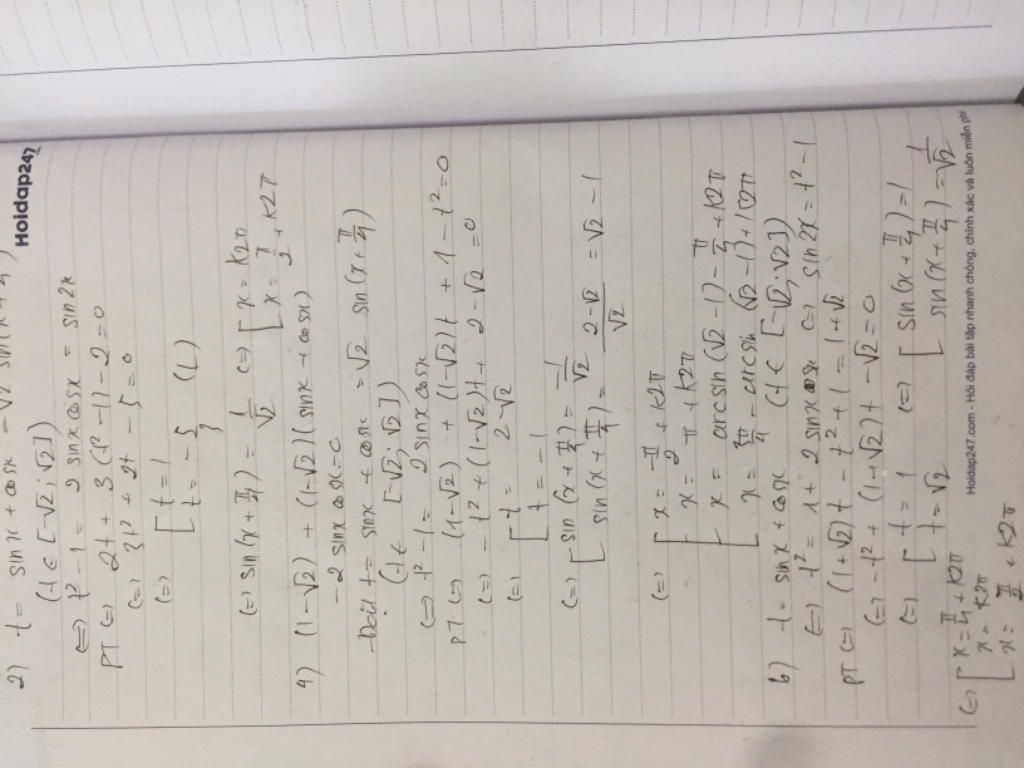 Hoidap247
2) t = sin x + cos x = √2 sin(x +
(t ∈ [-√2; √2])
(=) t² - 1 = 2 sin x cos x = sin 2x
PT (=) 2t + 3(t² - 1) - 2 = 0
(=) 3t² + 2t - 5 = 0
(=) [ t = 1
[ t = -5/3 (L)
(=) sin(x + π/4) = 1/√2 (=) [ x = k2π
[ x = π/2 + k2π
4) (1-√2) + (1-√2)(sin x + cos x)
- 2 sin x cos x = 0
Đặt t = sin x + cos x = √2 sin(x + π/4)
(t ∈ [-√2; √2])
(=) t² - 1 = 2 sin x cos x
PT (=) (1-√2) + (1-√2)t + 1 - t² = 0
(=) - t² + (1-√2)t + 2 - √2 = 0
(=) [ t = 2-√2
[ t = -1
(=) [ sin(x + π/4) = -1/√2
[ sin(x + π/4) = (2-√2)/√2 = √2 - 1
(=) [ x = -π/2 + k2π
x = π + k2π
[ x = arcsin(√2 - 1) - π/4 + k2π
[ x = 3π/4 - arcsin(√2 - 1) + k2π
6) t = sin x + cos x (t ∈ [-√2; √2])
(=) t² = 1 + 2 sin x cos x (=) sin 2x = t² - 1
PT (=) (1+√2)t - t² + 1 = 1 + √2
(=) - t² + (1+√2)t - √2 = 0
(=) [ t = 1 (=) [ sin(x + π/4) = 1
[ t = √2 [ sin(x + π/4) = 1/√2
Hoidap247.com - Hỏi đáp bài tập nhanh chóng, chính xác và luôn miễn phí
(=) [ x = π/4 + k2π
x = k2π
[ x = π/2 + k2π